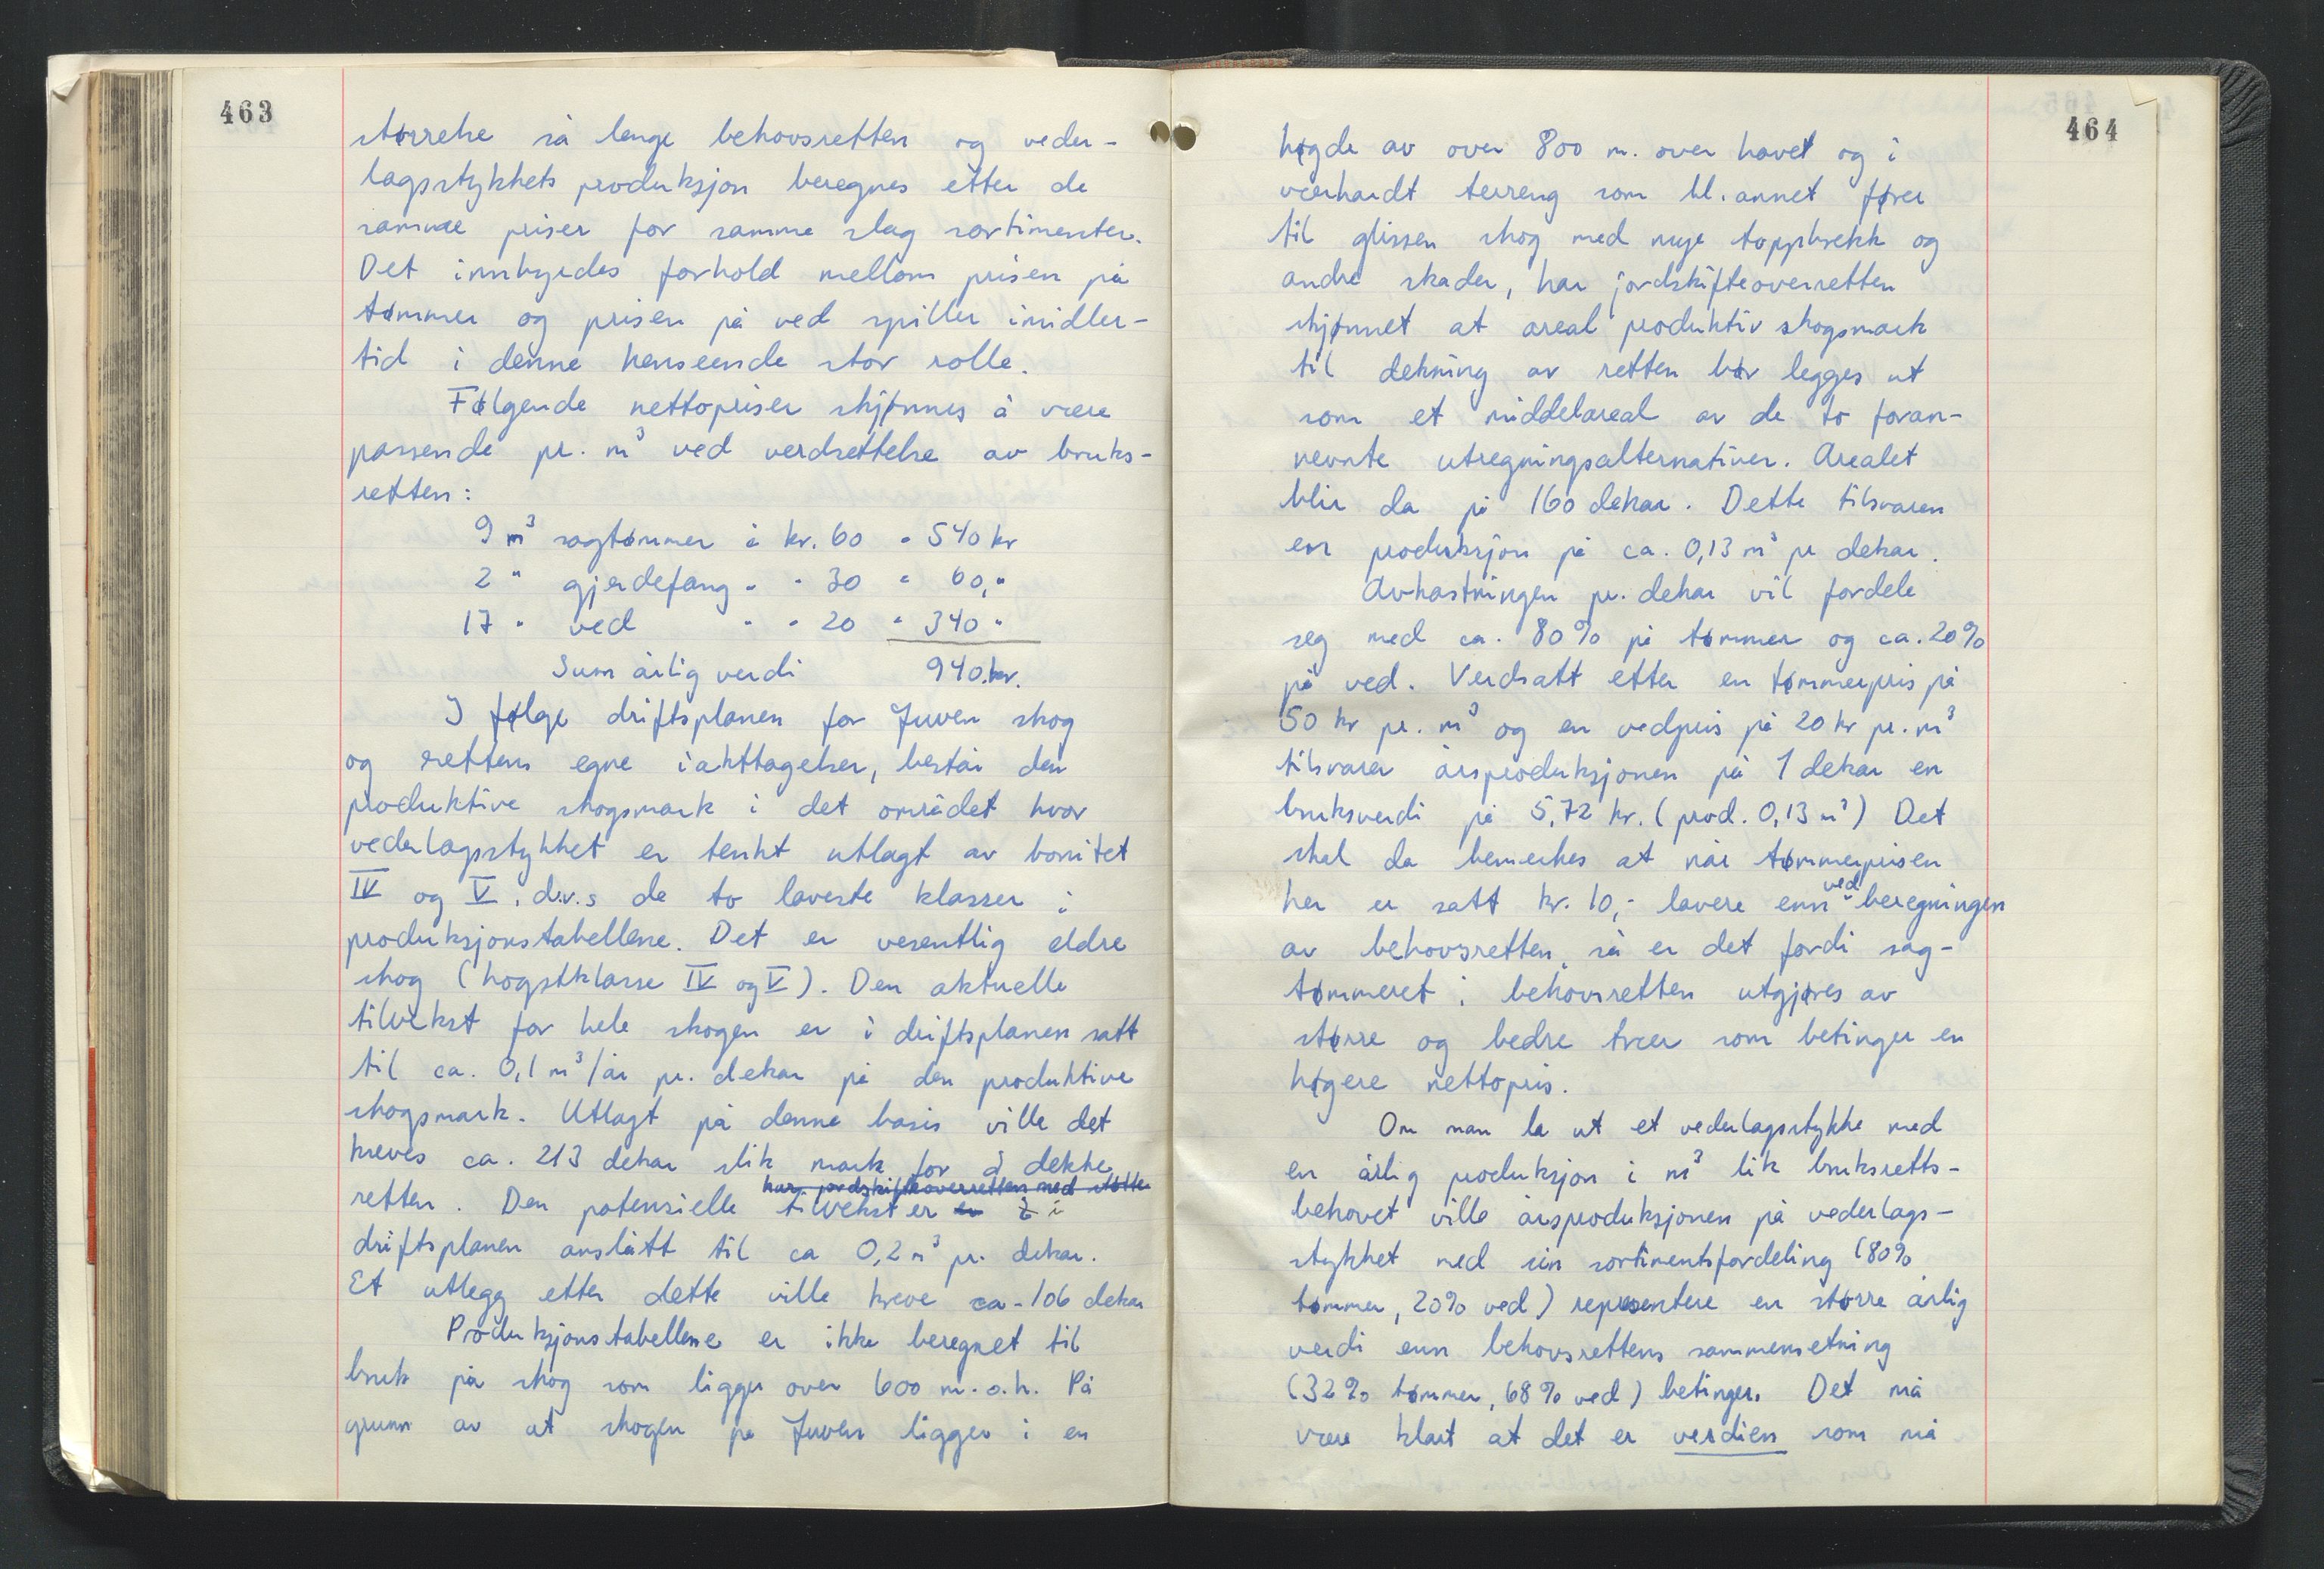 463
størrelse så lenge behovsretten og veder-
lagsstykkets produksjon beregnes etter de
samme priser for samme slag sortimenter.
Det innbyrdes forhold mellom prisen på
tømmer og prisen på ved spiller imidler-
tid i denne henseende stor rolle.
Følgende nettopriser skjønnes å være
passende pr. m³ ved verdsettelse av bruks-
retten:
9 m³ sagtømmer à kr. 60 = 540 kr
2 " gjerdefang " " 30 = 60,"
17 " ved " " 20 " 340 "
Sum årlig verdi 940.kr.
I følge driftsplanen for Juven skog
og rettens egne iakttagelser, består den
produktive skogsmark i det området hvor
vederlagsstykket er tenkt utlagt av bonitet
IV og V, d.v.s de to laveste klasser i
produksjonstabellene. Det er vesentlig eldre
skog (hogstklasse IV og V). Den aktuelle
tilvekst for hele skogen er i driftsplanen satt
til ca. 0,1 m³/år pr. dekar på den produktive
skogsmark. Utlagt på denne basis ville det
kreves ca. 213 dekar slik mark for å dekke
har jordskifteoverretten med støtte
retten. Den potensielle tilvekst er er i i
driftsplanen anslått til ca 0,2 m³ pr. dekar.
Et utlegg etter dette ville kreve ca. 106 dekar
Produksjonstabellene er ikke beregnet til
bruk på skog som ligger over 600 m.o.h. På
grunn av at skogen på Juven ligger i en
464
høgde av over 800 m. over havet og i
værhardt terreng som bl. annet fører
til glissen skog med mye toppbrekk og
andre skader, har jordskifteoverretten
skjønnet at areal produktiv skogsmark
til dekning av retten bør legges ut
som et middelareal av de to foran-
nevnte utregningsalternativer. Arealet
blir da på 160 dekar. Dette tilsvarer
en produksjon på ca. 0,13 m³ pr dekar.
Avkastningen pr. dekar vil fordele
seg med ca. 80% på tømmer og ca. 20%
på ved. Verdsatt etter en tømmerpris på
50 kr pr. m³ og en vedpris på 20 kr pr. m³
tilsvarer årsproduksjonen på 1 dekar en
bruksverdi på 5,72 kr. (prod. 0,13 m³) Det
skal da bemerkes at når tømmerprisen
her er satt kr. 10,- lavere enn ved beregningen
av behovsretten, så er det fordi sag-
tømmeret i behovsretten utgjøres av
større og bedre trær som betinger en
høgere nettopris.
Om man la ut et vederlagsstykke med
en årlig produksjon i m³ lik bruksretts-
behovet ville årsproduksjonen på vederlags-
stykket med sin sortimentsfordeling (80%
tømmer, 20% ved) representere en større årlig
verdi enn behovsrettens sammensetning
(32% tømmer, 68% ved) betinger. Det må
være klart at det er verdien som må